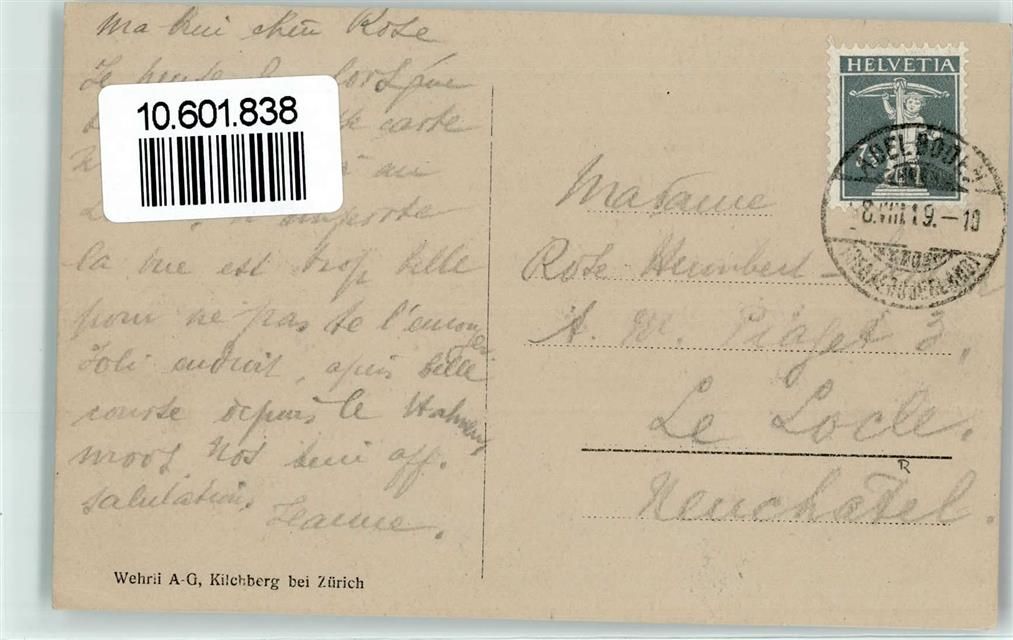 Ma bien chère Rose
Je pense
10.601.838
carte
au
n'importe
la vue est trop belle
pour ne pas te l'envoyer
Joli endroit, après belle
course depuis le Hahnen
moos. Nos bien aff.
salutations
Jeanne.
Wehrli A-G, Kilchberg bei Zürich
HELVETIA
ADELBODEN
8.VIII.19.-10
(BERNER OBERLAND)
Madame
Rose Humbert-
A. M. Piaget 3,
Le Locle.
R
Neuchâtel.